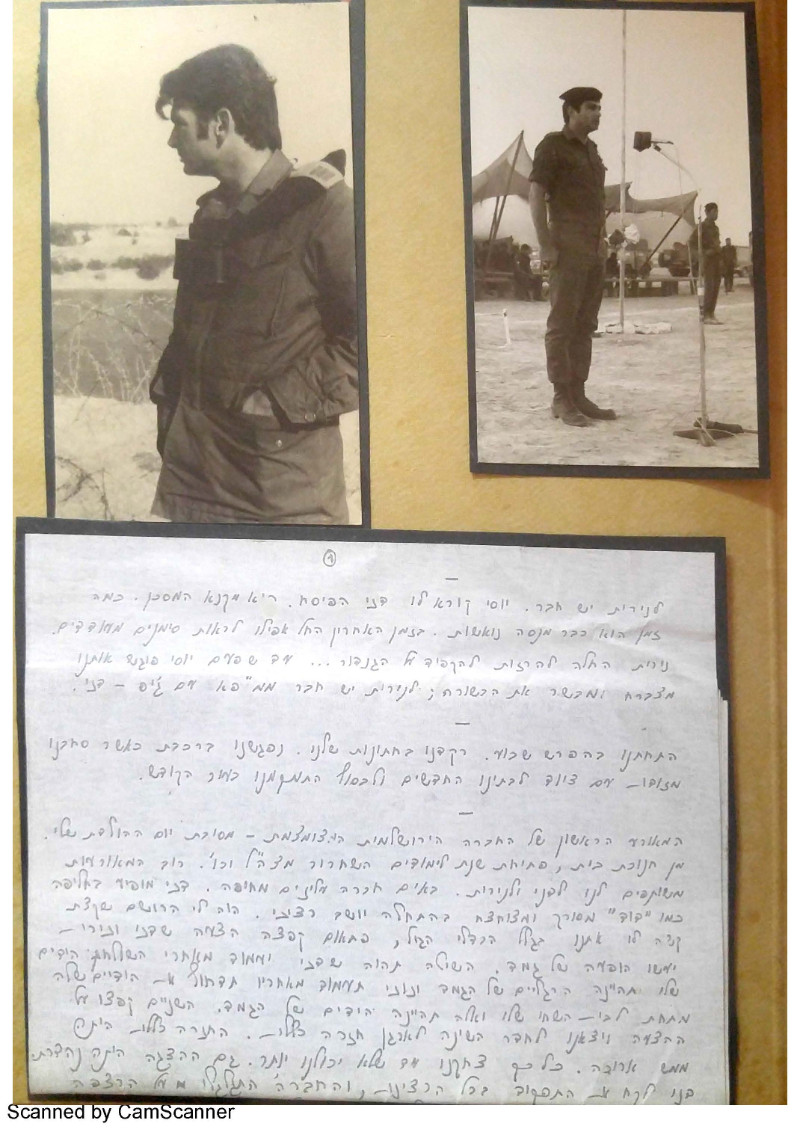 ①
—
לנירית יש חבר. יוסי קורא לו דזי הפיסח. היא מקנא המסכן. כמה
זמן הוא כבר מנסה נואשות. בזמן האחרון החל אפילו לראות סימנים מעודדים.
נירית החלה להרזות להקפיד על הגנדור... עד שפעם יוסי פוגש אותנו
מצברח ומבשר את הבשורה; לנירית יש חבר ממ"פא עם ג'יפ – דזי.
—
התחתנו בהפרש שבוע. רקדנו בחתונות שלנו. נפגשנו ברכבת כאשר סחבנו
מזוודות עם ציוד לבתינו החדשים ולבסוף התמקמנו בעיר הקודש.
—
המאורע הראשון של החברה הירושלמית המצומצמת – מסיבת יום ההולדת שלי.
מן חנוכת בית, פתיחת שנת לימודים השחרור מצה"ל וכו'. רוב המאורעות
משותפים לנו לבני ולנירית. באים חברה עליזים מחיפה. דזי מופיע בחליפה
כמו "דוד" מסורק ומצוחצח בהתחלה יושב רציני. היה לי הרושם שקצת
קשה לו אתנו בגלל הבדלי הגיל, פתאום קפצה הצעה שדזי וזיוי
יעשו הופעה של גמד. השולה תהיה שדזי יעמוד מאחרי השולחן הידים
שלו תהיינה הרגליים של הגמד וזוזי תעמוד מאחריו תדחוף את הידיים שלה
מתחת לבית השחי שלו ואלה תהיינה הידים של הגמד. השניים קפצו על
ההצעה ויצאנו לחדר השינה לארגן חזרה כללית. החזרה כללית היתה
ממש ארוכה. כל כך צחקנו עד שלא יכולנו יותר. גם ההצגה היתה נהדרת.
בני לקח את התפקיד בכל הרצינות, והחברה' התגלגלו מעל הרצפה
Scanned by CamScanner